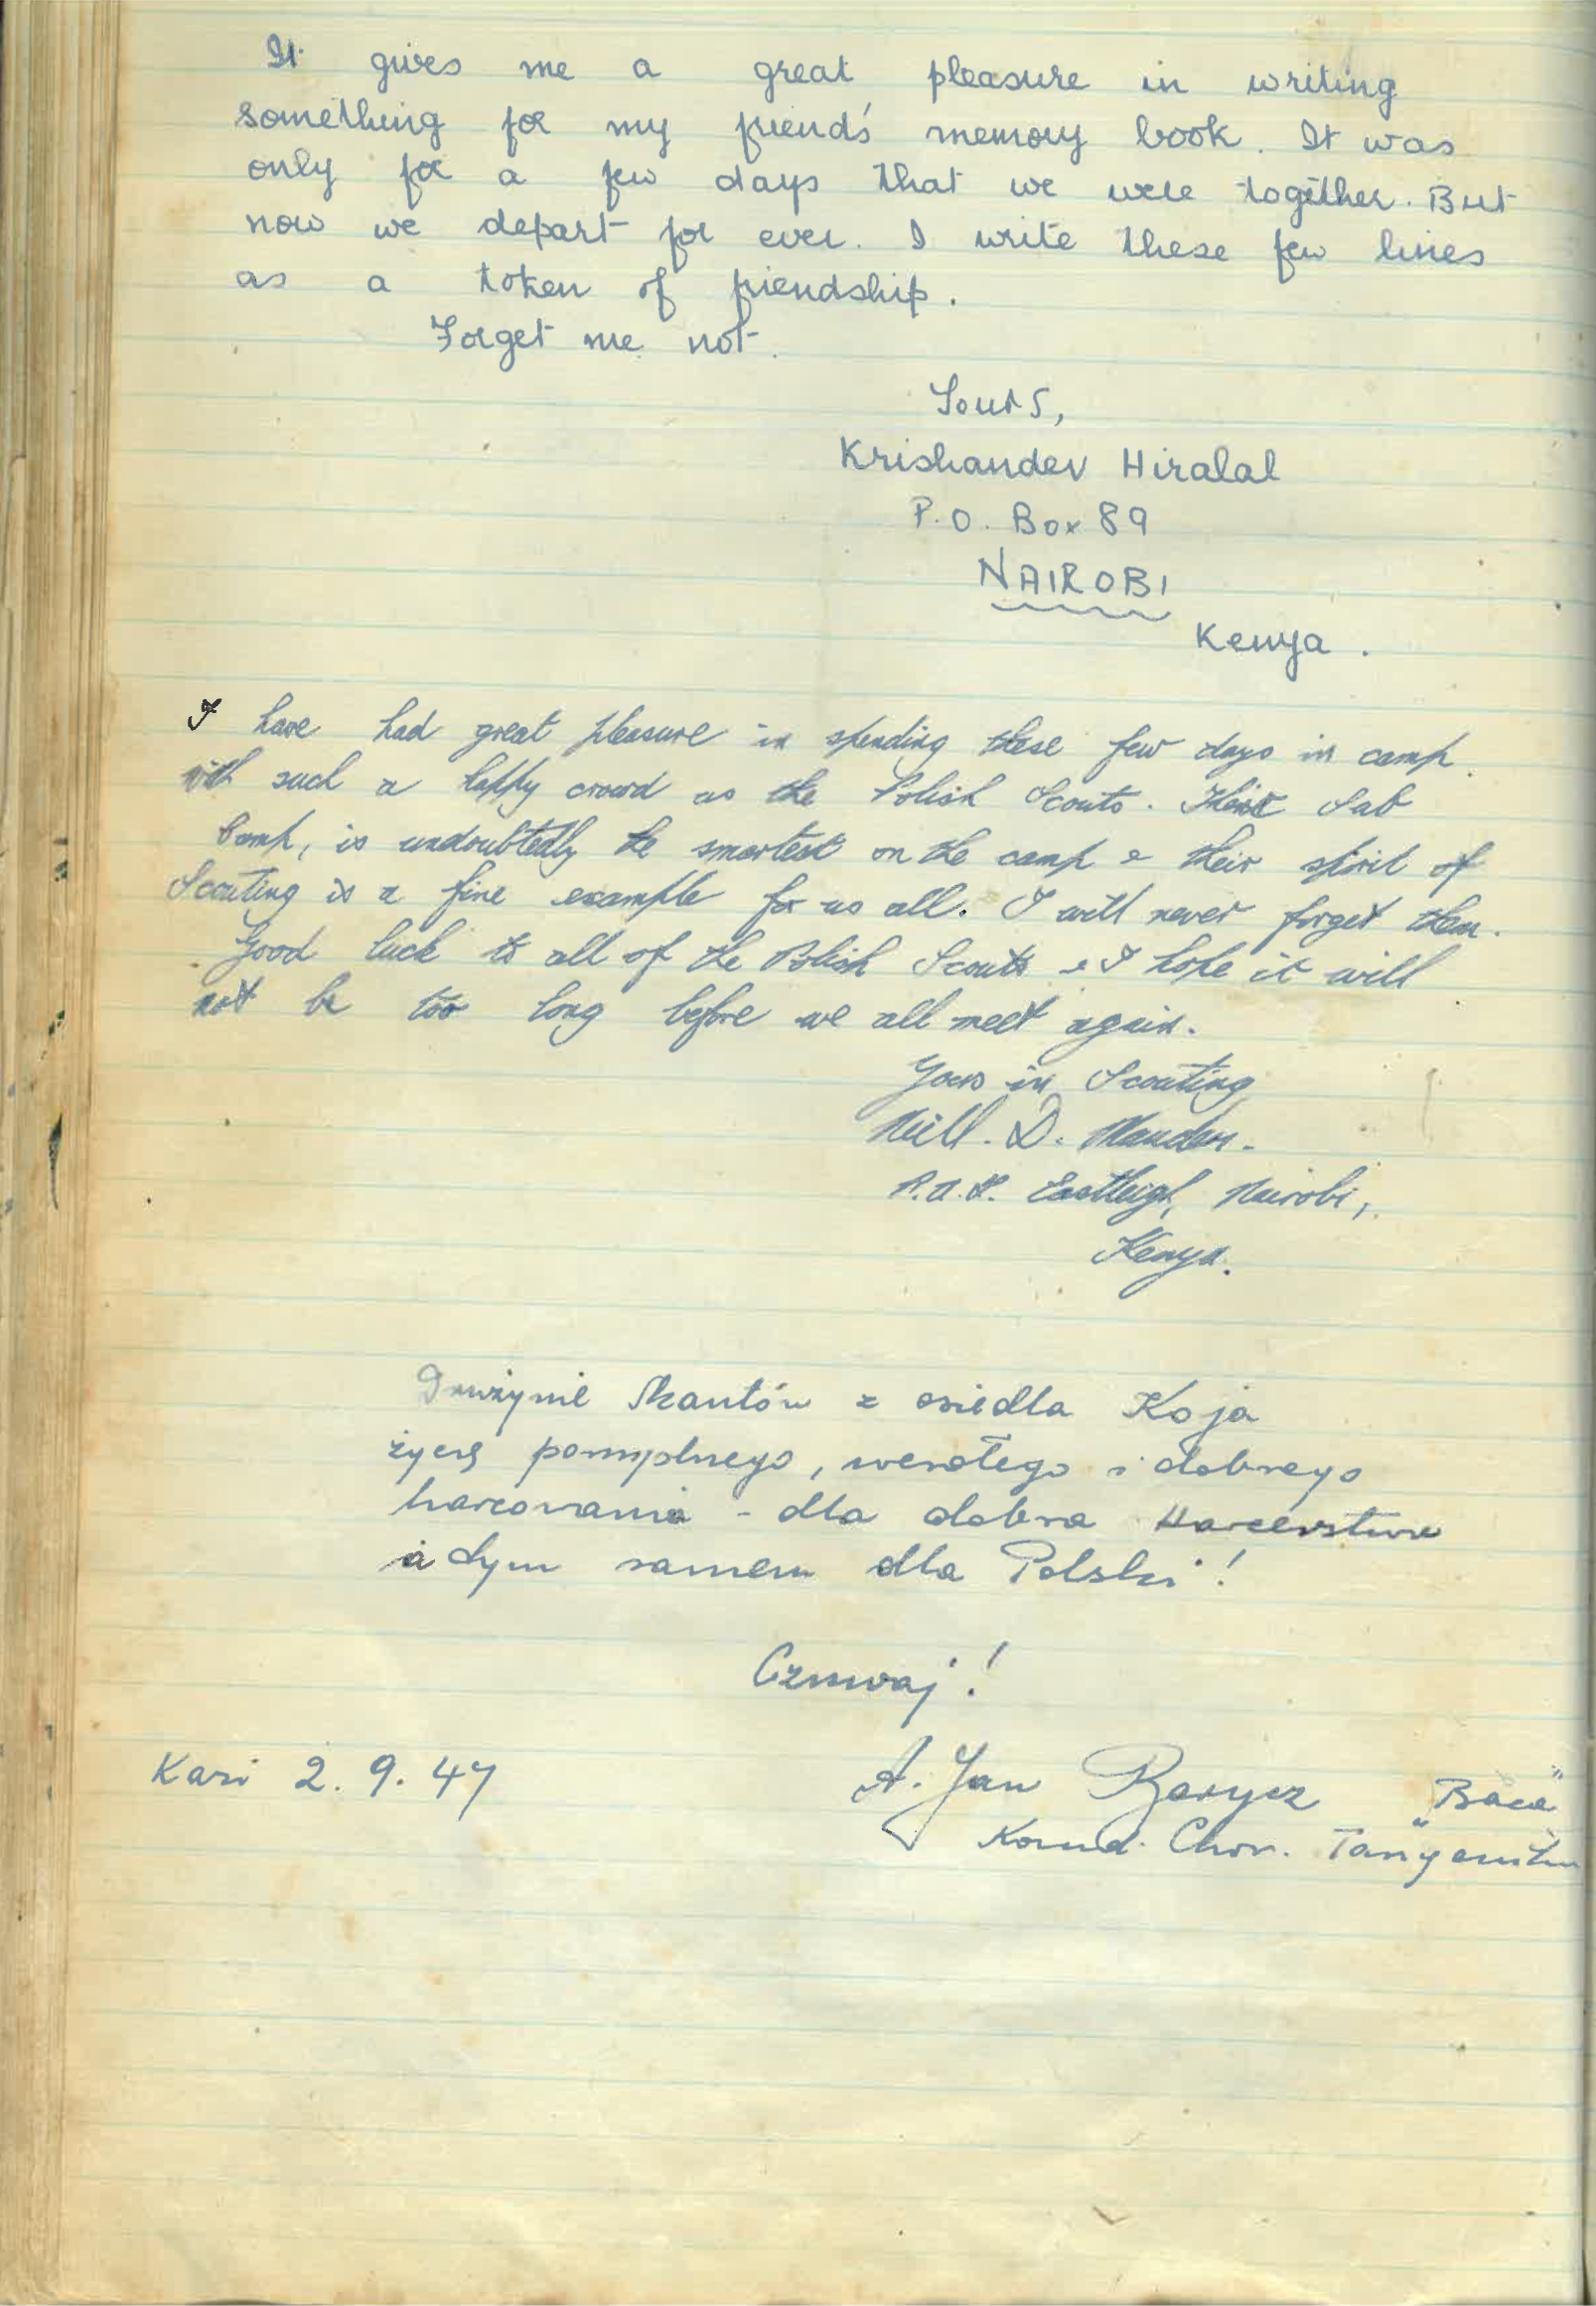 It gives me a great pleasure in writing
something for my friend's memory book. It was
only for a few days that we were together. But
now we depart for ever. I write these few lines
as a token of friendship.
Forget me not.
Yours,
Krishandev Hiralal
P.O. Box 89
NAIROBI
Kenya.
I have had great pleasure in spending these few days in camp
with such a happy crowd as the Polish Scouts. Their Sub
Camp, is undoubtedly the smartest on the camp & their spirit of
Scouting is a fine example for us all. I will never forget them.
Good luck to all of the Polish Scouts & I hope it will
not be too long before we all meet again.
Yours in Scouting
Neill. D.
Eastleigh, Nairobi,
Kenya.
Drużynie Skautów z osiedla Koja
życzę pomyślnego, wesołego i dobrego
harcowania - dla dobra Harcerstwa
a tym samem dla Polski!
Czuwaj!
Kari 2.9.47
A. Jan Barycz "Baca"
Komd. Chor. "Tanganika